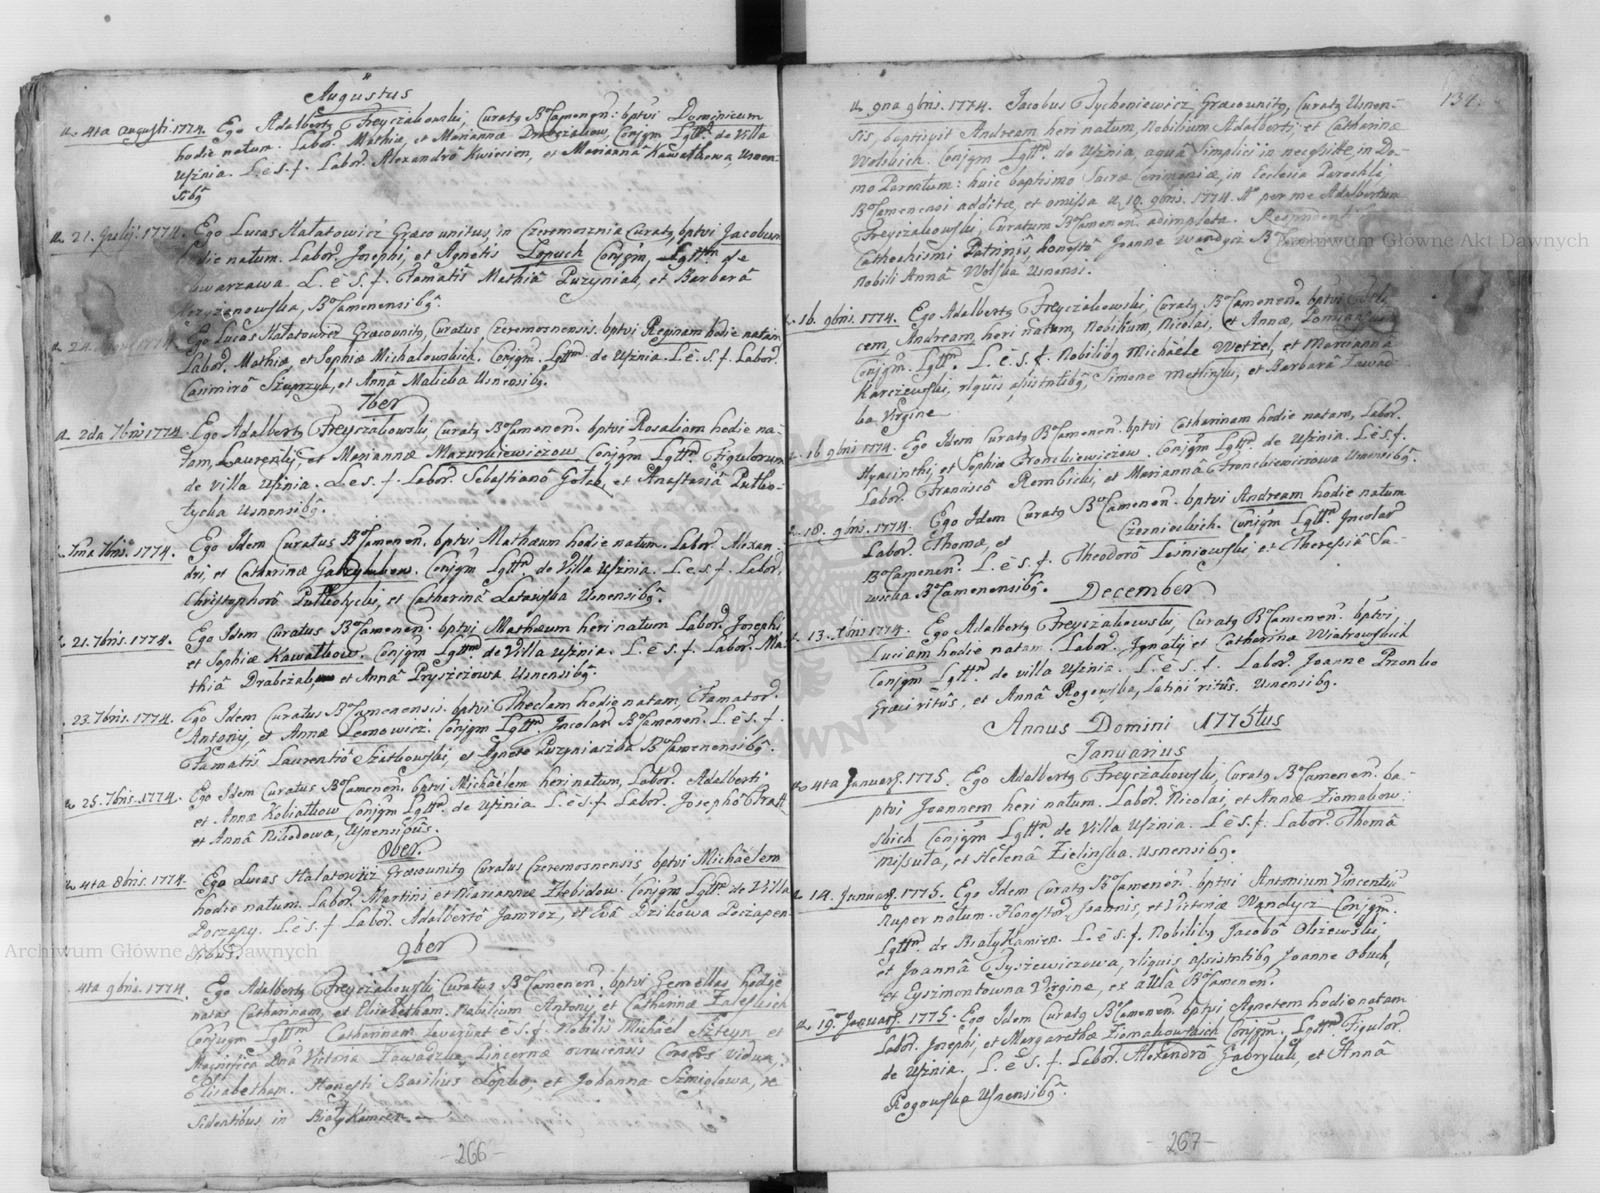 Augustus
4ta Augusti 1774. Ego Adalberty Freyczakowski, Curaty BoCamenen: bptvi Dominicum
hodie natum. Labor. Mathiæ, et Mariannæ Drabczakow, Conjgm Lgttm. de Villa
Usznia. L. è s. f. Labor. Alexandrô Kwiecien, et Mariannâ Kawalkowa, Usnen-
sibg
21. Julij. 1774. Ego Lucas Halatowicz Græcounitus, in Czeremosznia Curaty, bptvi Jacobum
hodie natum. Labor. Josephi, et Agnetis Lopuch Conjgm, Lgttm de
L. è s. f. Famatis Mathiâ Puzyniak, et Barbarâ
BoCamenensibg.
24. Ego Lucas Halatowicz Græcounity, Curatus Czeremosnensis. bptvi Reginam hodie natam
Labor. Mathiæ, et Sophiæ Michalowskich. Conjgm. Lgttm. de Usznia. L. è. s. f. Labor.
Casimirô Szuprzyk, et Annâ Malicka Usnensibg.
7ber
a 2da 7bris 1774. Ego Adalberty Freyczakowski, Curaty BoCamenen. bptvi Rosaliam hodie na-
tam, Laurentij, et Mariannæ Mazurkiewiczow Conjgm Lgttm. Figulorum
de Villa Usznia. L. è s. f. Labor. Sebastianô Golab, et Anastasiâ Putko-
lycka Usnensibg.
7ma 7bris. 1774. Ego Idem Curatus BoCamenen. bptvi Mathæum hodie natum. Labor. Alexan-
dri, et Catharinæ Conjgm Lgttm de Villa Usznia. L. è. s. f. Labor.
Christophorô et Catharinâ Latawska Usnensibg.
21. 7bris. 1774. Ego Idem Curatus BoCamenen: bptvi Mathæum heri natum Labor. Josephi
et Sophiæ Kawalkow. Conjgm Lgttm. de Villa Usznia. L. è s. f. Labor. Ma-
thiâ Drabczak, et Annâ Pryszczowa Usnensibg.
23. 7bris. 1774. Ego Idem Curatus BoCamenensis. bptvi Theclam hodie natam, Famator.
Antonij, et Annæ Leonowicz. Conjgm Lgttm. Incolar. BoCamenen. L. è s. f.
Famatis Laurentiô Szatkowski, et Agnete Puzyniaczka BoCamenensibg.
a 25. 7bris. 1774. Ego Idem Curatus BoCamenen. bptvi Michäelem heri natum, Labor. Adalberti
et Annæ Kobialkow Conjgm Lgttm. de Usznia L. è s. f. Labor. Josephô
et Annâ Nikodowa, Usnensibus.
8ber.
4ta 8bris. 1774. Ego Lucas Halatowicz Græcounity Curatus Czeremosnensis bptvi Michäelem
hodie natum. Labor. Martini, et Mariannæ Conjgm Lgttm. de Villa
Poczapy. L. è s. f. Labor. Adalbertô Jamroz, et Evâ Dzikowa Poczapen-
sibus.
9ber
4ta 9bris. 1774. Ego Adalberty Freyczakowski Curaty BoCamenen. bptvi Gemellas hodie
natas Catharinam, et Elisabetham. Nobilium Antonij et Catharinæ Zaleskich
Conjugm Lgttm. Catharinam levavit è s. f. Nobilis Michäel Szteyn et
Magnifica Dna Victoria Zawadzka Pincernæ Consors vidua;
Elisabetham. Honesti Basilius et Johanna Szmiglowa, re
sidentibus in Bialy Kamien.
-266-
137.
a 9na 9bris. 1774. Jacobus Tychoniewicz, Græcounity, Curaty Usnen-
sis, baptizavit Andream heri natum, Nobilium Adalberti et Catharinæ
Wolskich. Conjgm Lgttm. de Usznia, aquâ simplici in necessitate, in Do-
mo Parentum: huic baptismo Sacræ Cerimoniæ, in Ecclesia Parochli
BoCamenensi additæ, et omissa a 19. 9bris. 1774. Ao per me Adalbertum
Freyczakowski, Curatum BoCamenen. adimpleta. Respondent
Cathechismi Patrinis, honestô Joanne Wandycz
Nobili Annâ Wolska Usnensi.
16. 9bris. 1774. Ego Adalberty Freyczakowski, Curaty BoCamenen. bptvi
cem, Andream heri natum, Nobilium, Nicolai, et Annæ,
Conjgm. Lgttm. L. è. s. f. Nobilibg Michäele Wetzel, et Mariannâ
Karczewski, rlquis assistntibg, Simone Metlinski, et Barbarâ Zawad-
ka Virgine
16 9bris 1774. Ego Idem Curaty BoCamenen. bptvi Catharinam hodie natam, Labor.
Hyacinthi, et Sophiæ Fronckiewiczow. Conjgm Lgttm. de Usznia. L. è s. f.
Labor. Franciscô Rembicki, et Mariannâ Fronckiewiczowa Usnensibg.
18. 9bris. 1774. Ego Idem Curaty BoCamenen. bptvi Andream hodie natum
Labor. Thomæ, et Czernieckich. Conjgm Lgttm. Incolar
BoCamenen. L. è s. f. Theodorô Lesniowski et Theressiâ Sa-
wicka BoCamenensibg.
December
13. Xbris 1774. Ego Adalberty Freyczakowski, Curaty BoCamenen. bptvi,
Luciam hodie natam. Labor. Ignatij et Catharinæ Wiatrowskich
Conjgm Lgttm. de villa Usznia. L. è s. f. Labor. Joanne Przonko
Græci ritûs, et Annâ Rogowska, Latini ritûs. Usnensibg.
Annus Domini 1775tus
Januarius
a 4ta Januar. 1775. Ego Adalberty Freyczakowski, Curaty BoCamenen. ba-
ptvi Joannem heri natum. Labor. Nicolai, et Annæ Ziomakow:
skich Conjgm Lgttm. de Villa Usznia. L. è s. f. Labor. Thomâ
Missuta, et Helenâ Zielinska. Usnensibg.
14. Januar. 1775. Ego Idem Curaty BoCamenen. bptvi Antonium Vincentiu
nuper natum. Honestor. Joannis, et Victoriæ Wandycz Conjgm.
Lgttm. de Bialy Kamien. L. è s. f. Nobilibg Jacobô Olszewski,
et Joannâ Tyszewiczowa, rlquis assistntibg Joanne Obuch,
et Eyszimontowna Virgine, ex aula BoCamenen.
a 19. Januar. 1775. Ego Idem Curaty BoCamenen. bptvi Agnetem hodie natam
Labor. Josephi, et Margarethæ Ziomakowskich Conjgm. Lgttm. Figulor.
de Usznia. L. è s. f. Labor. Alexandrô Gabryluk, et Annâ
Rogowska Usnensibg.
-267-
Archiwum Główne Akt Dawnych
Archiwum Główne Akt Dawnych